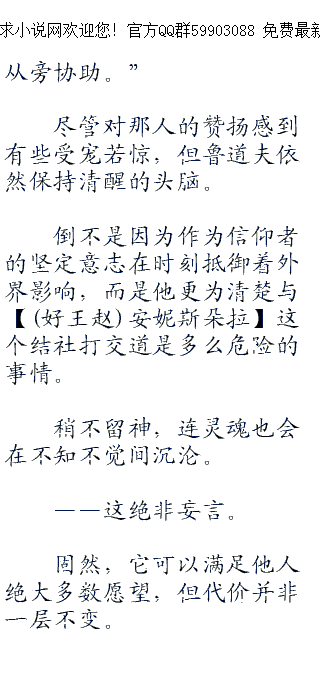 求小说网欢迎您！官方QQ群59903088 免费最新
从旁协助。”
尽管对那人的赞扬感到
有些受宠若惊，但鲁道夫依
然保持清醒的头脑。
倒不是因为作为信仰者
的坚定意志在时刻抵御着外
界影响，而是他更为清楚与
【(好王赵)安妮斯朵拉】这
个结社打交道是多么危险的
事情。
稍不留神，连灵魂也会
在不知不觉间沉沦。
——这绝非妄言。
固然，它可以满足他人
绝大多数愿望，但代价并非
一层不变。